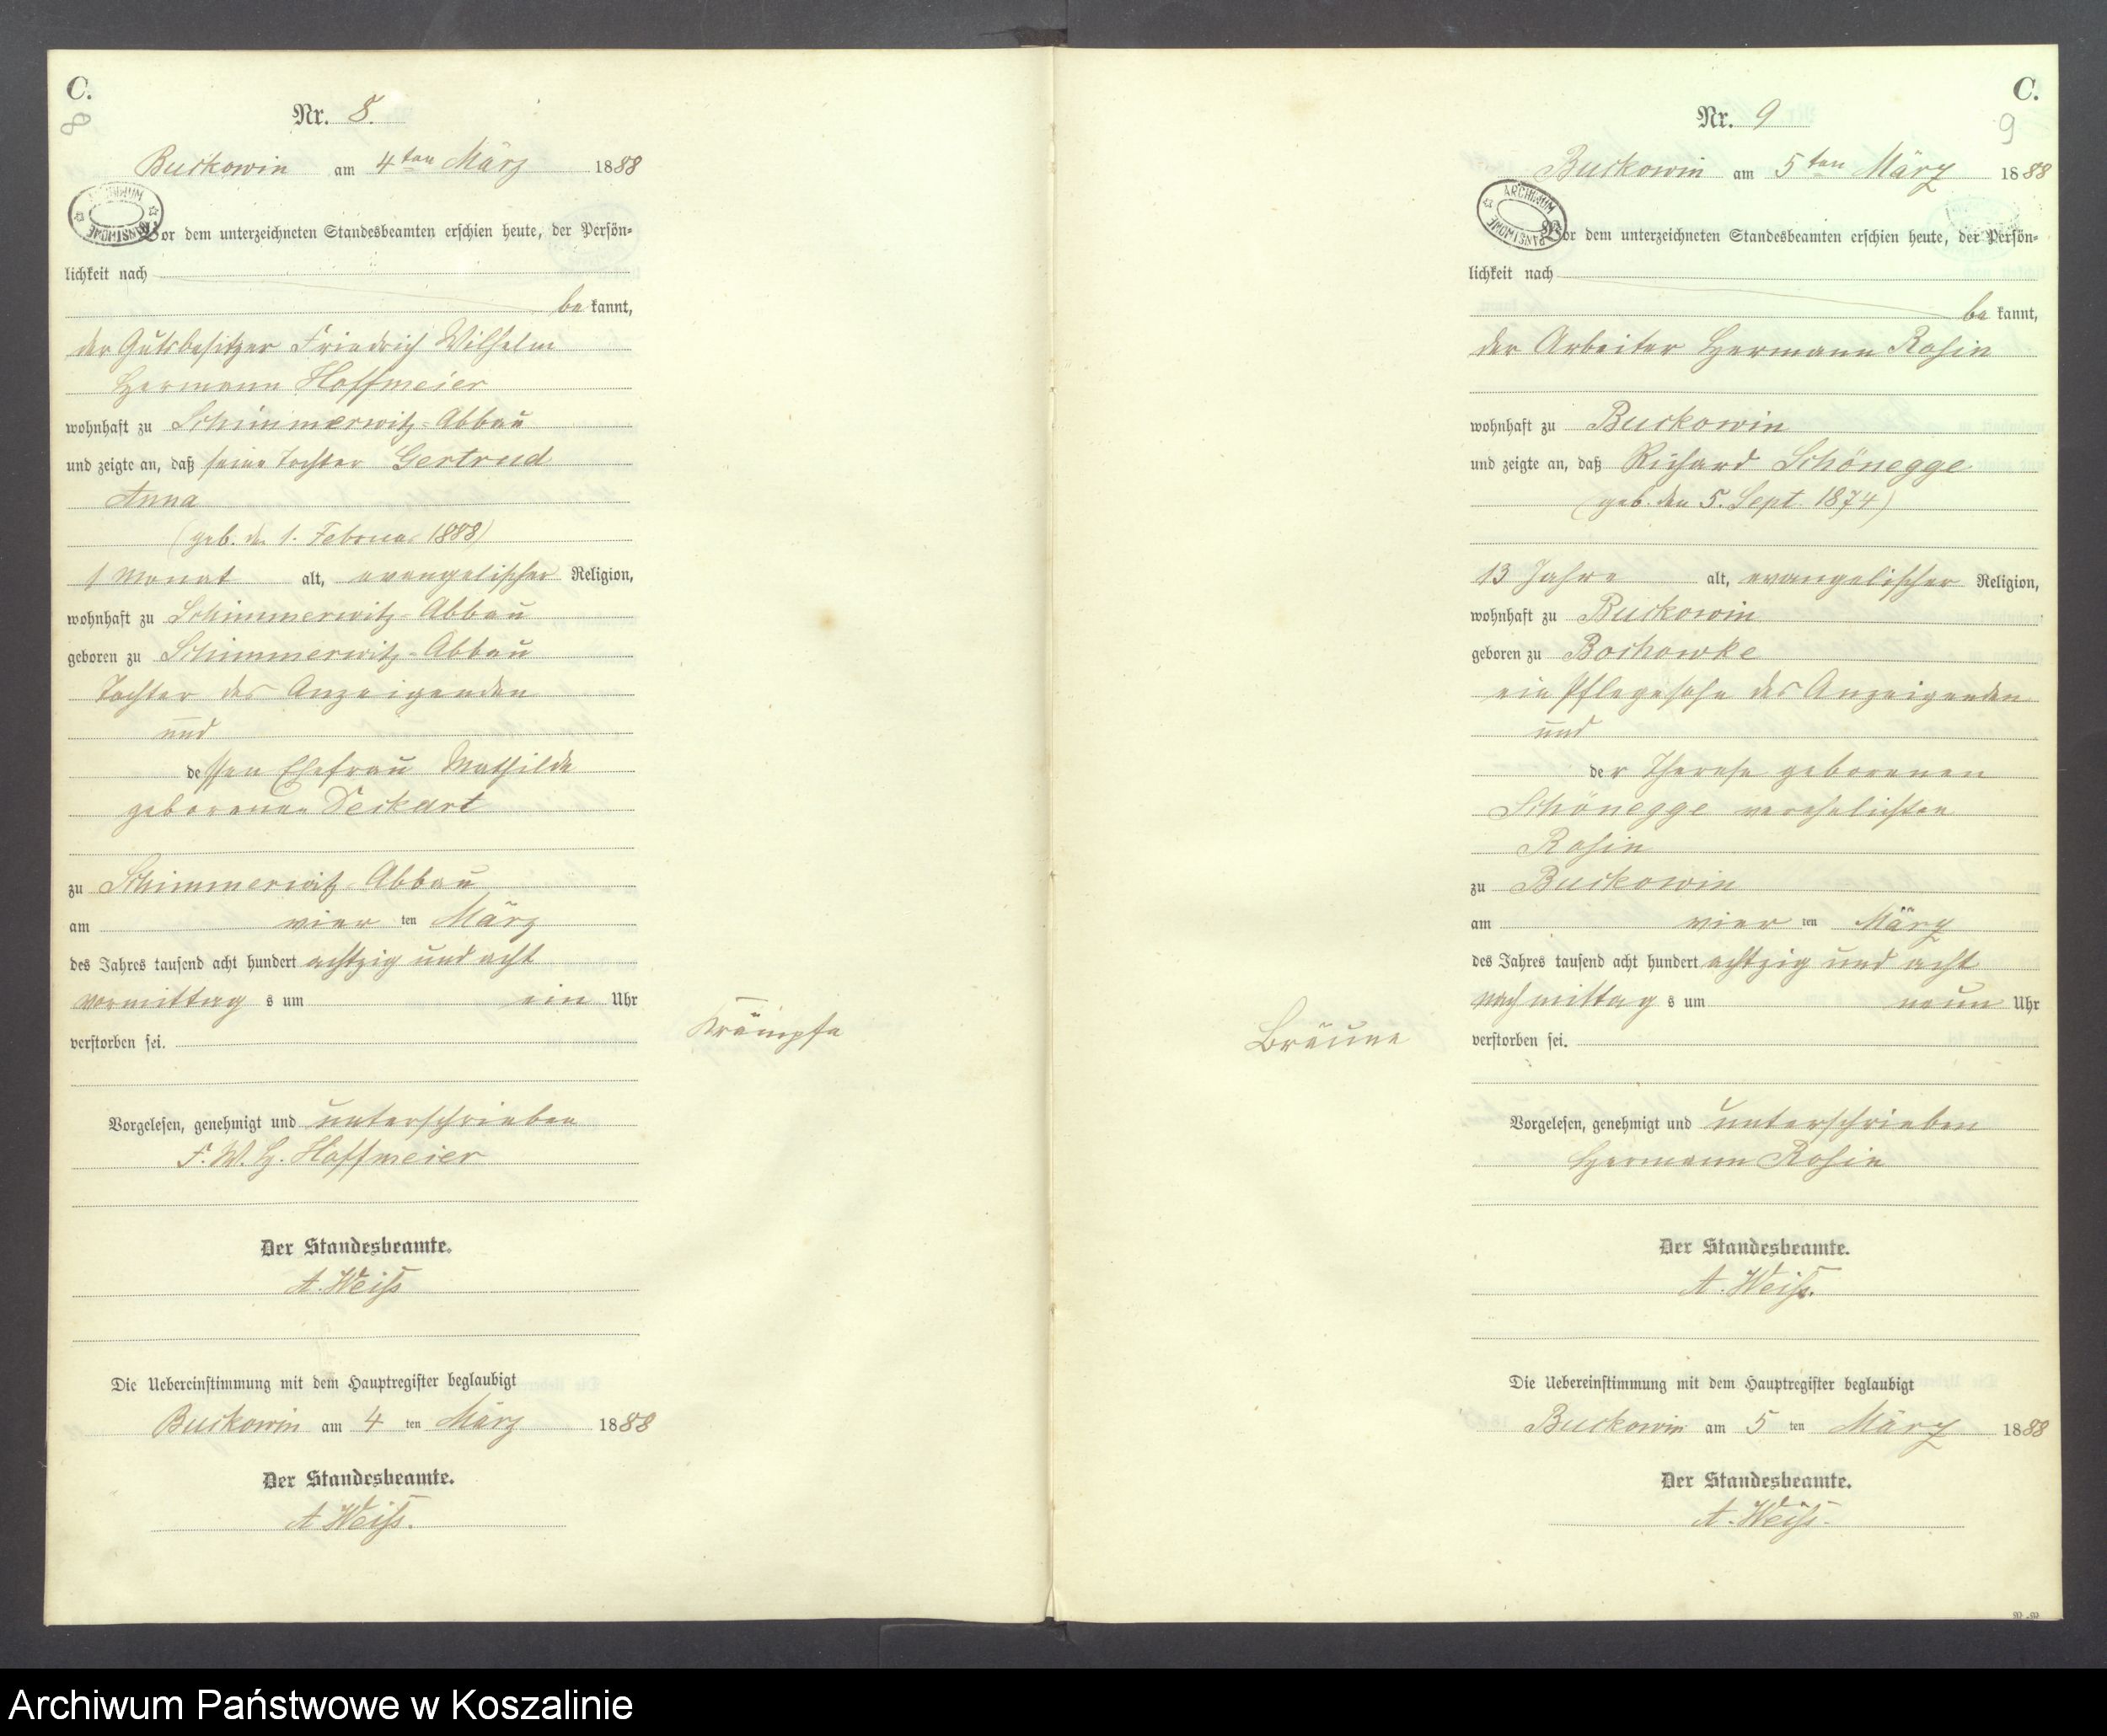 C.
8
Nr. 8.
Buckowin am 4ten März 1888
Vor dem unterzeichneten Standesbeamten erschien heute, der Persön-
lichkeit nach
bekannt,
der Gutsbesitzer Friedrich Wilhelm
Hermann Hoffmeier
wohnhaft zu Schimmerwitz-Abbau
und zeigte an, daß seine Tochter Gertrud
Anna
(geb. den 1. Februar 1888)
1 Monat alt, evangelischer Religion,
wohnhaft zu Schimmerwitz-Abbau
geboren zu Schimmerwitz-Abbau
Tochter des Anzeigenden
und
dessen Ehefrau Mathilde
geborenen Deckart
zu Schimmerwitz-Abbau
am vierten März
des Jahres tausend acht hundert achtzig und acht
vormittags um ein Uhr
verstorben sei.
Krämpfe
Vorgelesen, genehmigt und unterschrieben
F. W. H. Hoffmeier
Der Standesbeamte.
A. Weiß
Die Uebereinstimmung mit dem Hauptregister beglaubigt
Buckowin am 4ten März 1888
Der Standesbeamte.
A. Weiß.
C.
9
Nr. 9
Buckowin am 5ten März 1888
ARCHIWUM PAŃSTWOWE
Vor dem unterzeichneten Standesbeamten erschien heute, der Persön-
lichkeit nach
bekannt,
der Arbeiter Hermann Rosin
wohnhaft zu Buckowin
und zeigte an, daß Richard Schönegge
(geb. den 5. Sept. 1874)
13 Jahre alt, evangelischer Religion,
wohnhaft zu Buckowin
geboren zu Bochowke
ein Pflegesohn des Anzeigenden
und
der Therese geborenen
Schönegge verehelichten
Rosin
zu Buckowin
am vierten März
des Jahres tausend acht hundert achtzig und acht
nachmittags um neun Uhr
verstorben sei.
Bräune
Vorgelesen, genehmigt und unterschrieben
Hermann Rosin
Der Standesbeamte.
A. Weiß.
Die Uebereinstimmung mit dem Hauptregister beglaubigt
Buckowin am 5ten März 1888
Der Standesbeamte.
A. Weiß.
Archiwum Państwowe w Koszalinie